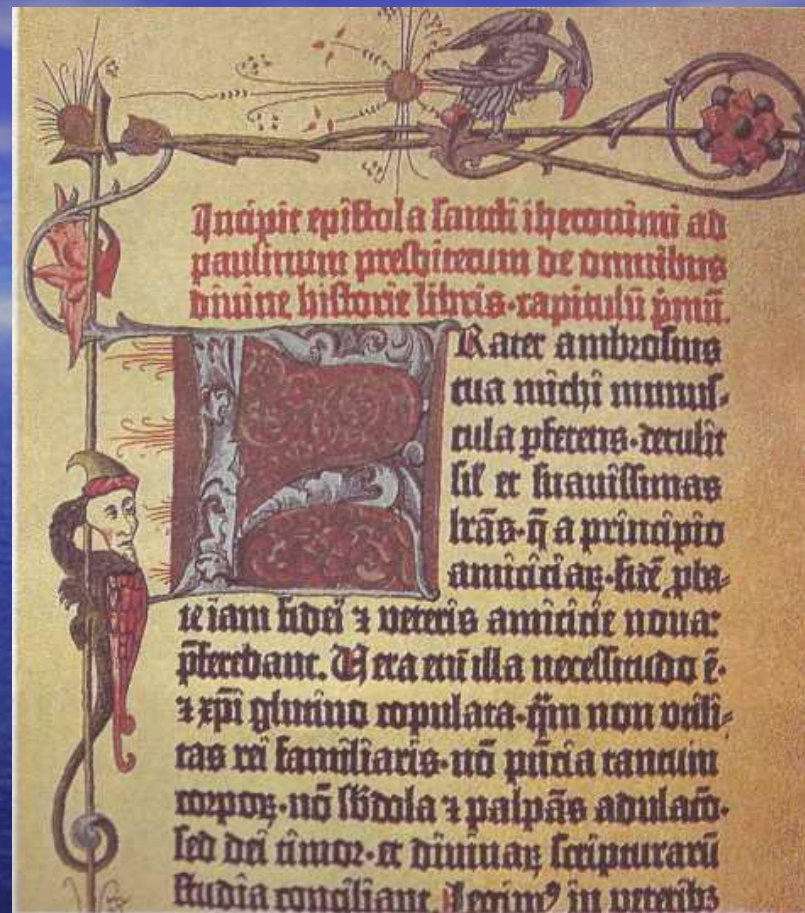 Incipit epistola sancti iheronimi ad
paulinum presbiterum de omnibus
divine historie libris·capitulū p̄mū.
FRater ambrosius
tua michi munus-
cula p̄ferens·detulit
sil̄ et suavissimas
lrās·q̄ a principio
amiciciaꝝ·fidē ꝓba-
te iam fidei ⁊ veteris amicicie nova:
p̄ferebant. Vera eni̅ illa necessitudo ē·
⁊ xp̄i glutino copulata·q̄m non utili-
tas rei familiaris·nō p̄ncia tantum
corpoꝝ·nō sbdola ⁊ palpās adulacō·
sed dei timor·et divinaꝝ scripturarū
studia conciliant. Legimꝰ in veteribꝫ